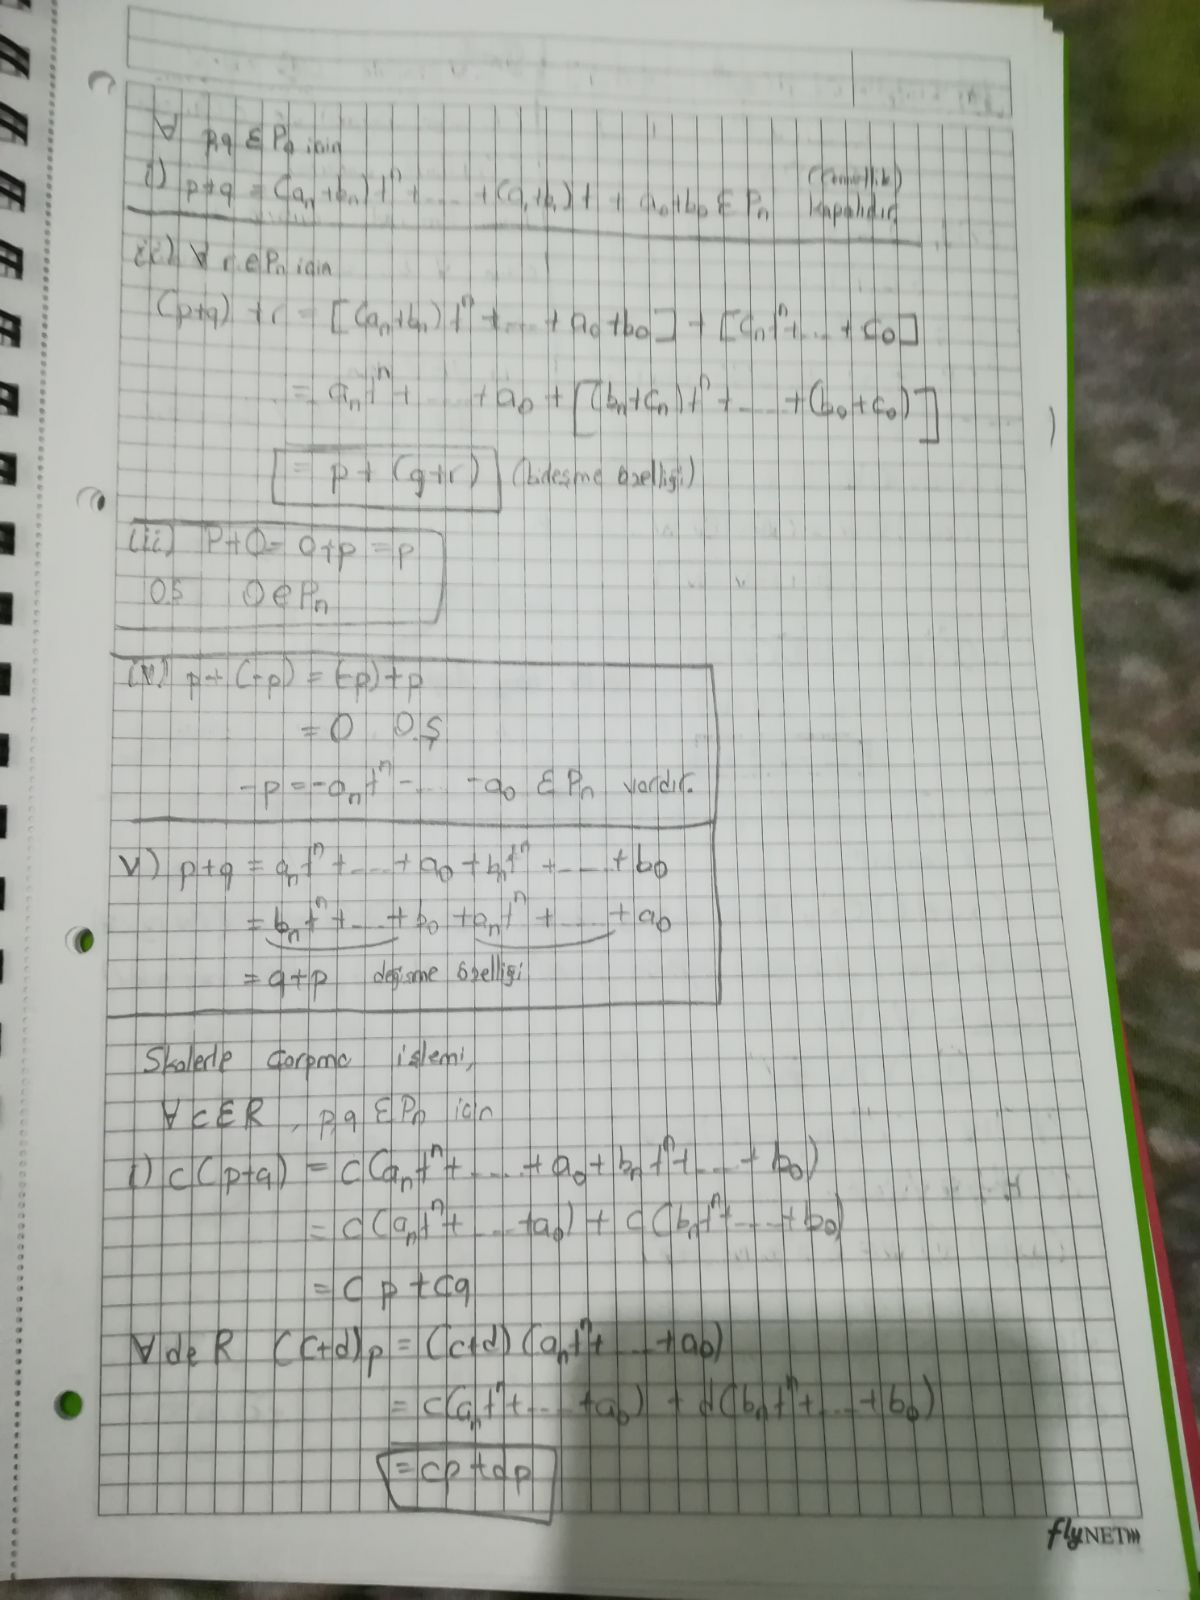 ∀ p,q ∈ Pn için
i) p+q = (an+bn)tⁿ+ ..... +(a1+b1)t + a0+b0 ∈ Pn
Kapalıdır
ii) ∀ r ∈ Pn için
(p+q) + r = [(an+bn)tⁿ +...+ a0+b0] + [cntⁿ+...+c0]
= antⁿ+ ..... + a0 + [(bn+cn)tⁿ+.....+(b0+c0)]
= p + (q+r) (birleşme özelliği)
iii) P+0= 0+p = p
0.Ş 0 ∈ Pn
iv) p+ (-p) = (-p)+p
= 0 0.Ş
-p = -antⁿ- ..... -a0 ∈ Pn vardır.
v) p+q = antⁿ+.....+a0+bntⁿ+.....+b0
= bntⁿ+.....+b0+antⁿ+.....+a0
= q+p değişme özelliği
Skalerle Çarpma işlemi,
∀c∈R, p,q ∈ Pn için
i) c(p+q) = c(antⁿ+.....+a0+bntⁿ+...+b0)
= c(antⁿ+.....+a0) + c(bntⁿ+.....+b0)
= cp+cq
∀d∈R (c+d)p = (c+d)(antⁿ+...+a0)
= c(antⁿ+.....+a0) + d(bntⁿ+...+b0)
= cp+dp
flyNET